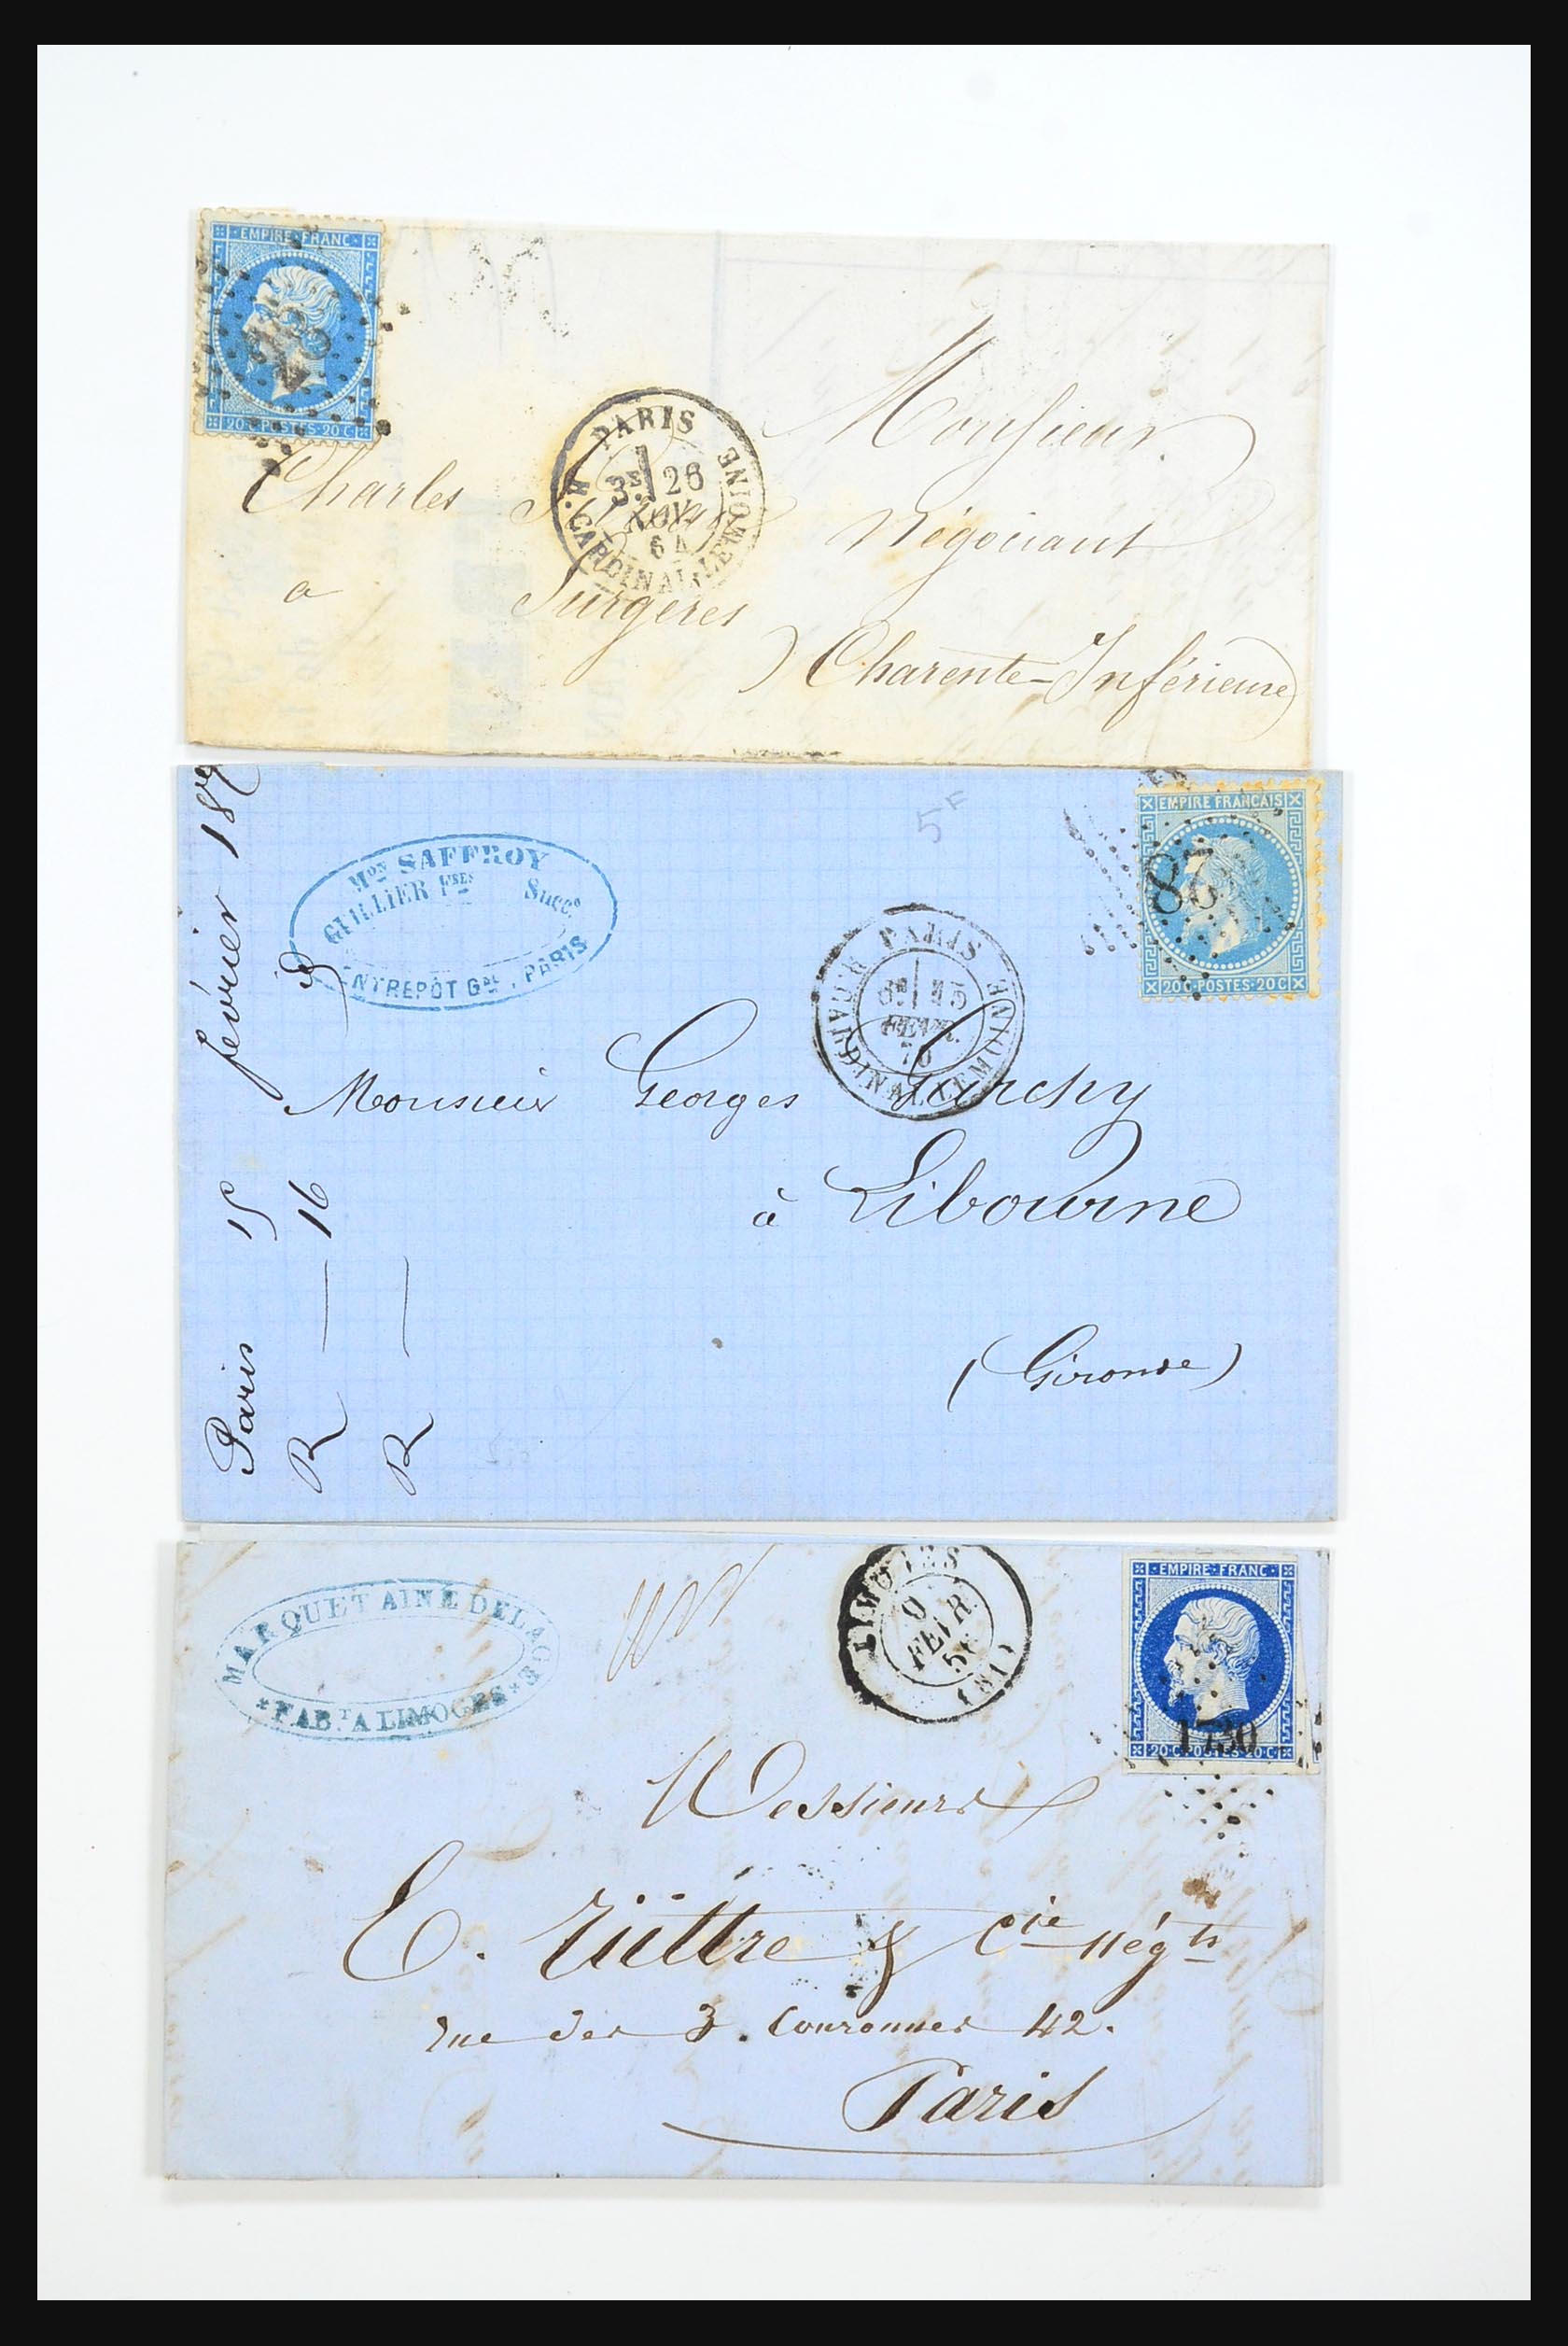 EMPIRE FRANC
20 C POSTES 20 C
28
PARIS
3E 26
NOV.
64
R. CARDINAL LEMOINE
Monsieur
Charles
Négociant
a Surgères
(Charente-Inférieure)
Paris 15 février 187
R — 16
R —
Mon SAFFROY
GUILLIER Fres Succs
ENTREPÔT Gal, PARIS
5F
EMPIRE FRANCAIS
20 C POSTES 20 C
28
PARIS
6E 15
FEVR.
70
R. CARDINAL LEMOINE
Monsieur Georges
à Libourne
(Gironde)
MARQUET AINE DELAGE
* FABT A LIMOGES *
LIMOGES
FEVR
(81)
EMPIRE FRANC
20 C POSTES 20 C
1730
Messieurs
E. Rüttre & Cie négts
rue des 3. Couronnes 42.
Paris